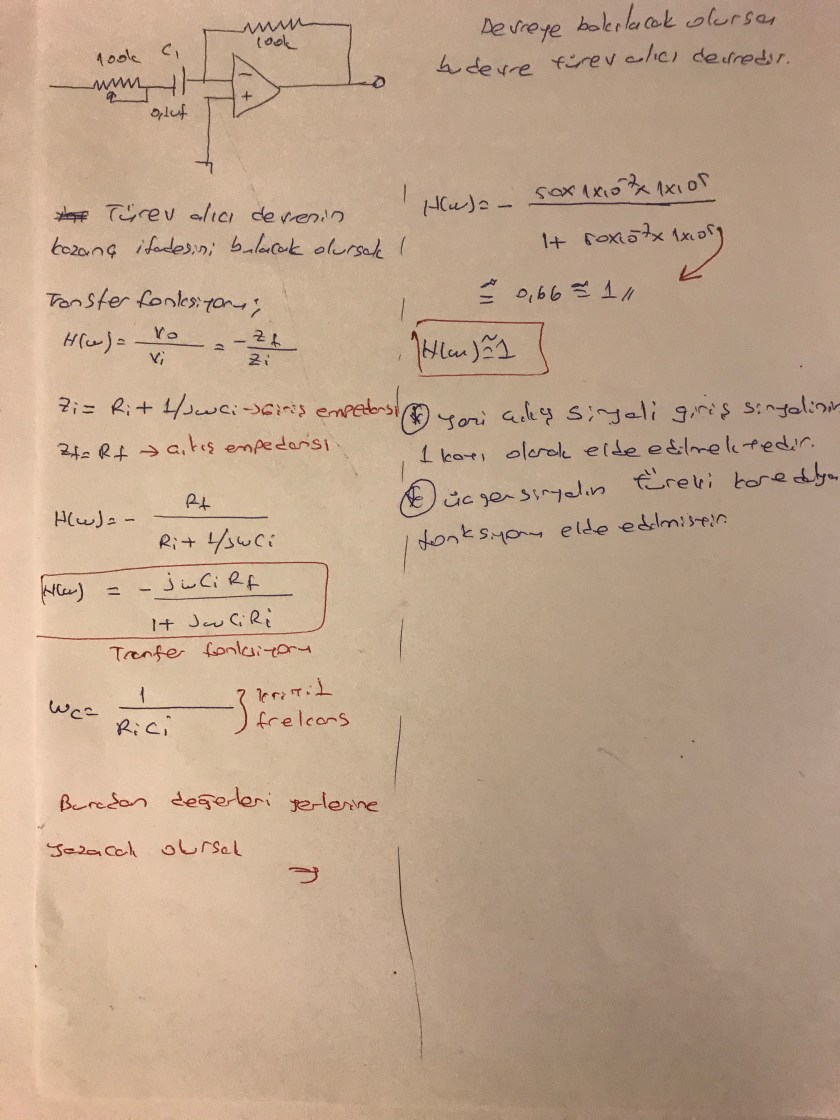 100k C₁
100k
0,1uf
-
+
Devreye bakılacak olursa
bu devre türev alıcı devredir.
Türev alıcı devrenin
kazanç ifadesini bulacak olursak
Transfer fonksiyonu;
H(w) = Vo / Vi = -Zf / Zi
Zi = Ri + 1/jwCi → Giriş empedansı
Zf = Rf → çıkış empedansı
H(w) = - Rf / Ri + 1/jwCi
H(w) = - jwCiRf / 1 + jwCiRi
Tranfer fonksiyonu
wc = 1 / RiCi } kritik
frekans
Buradan değerleri yerlerine
yazacak olursak
→
H(w) = - 50x1x10⁻⁷x1x10⁵ / 1 + 50x10⁻⁷x1x10⁵
≅ 0,66 ≅ 1 //
H(w) ≅ 1
yani çıkış sinyali giriş sinyalinin
1 katı olarak elde edilmektedir.
üçgen sinyalin türevi kare dalga
fonksiyonu elde edilmiştir.